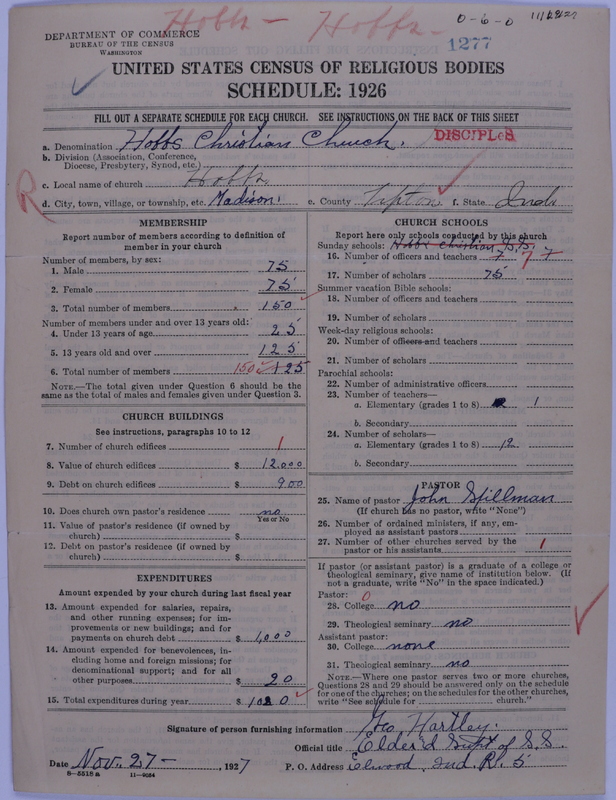 Hobbs – Hobbs.
0-6-0
DEPARTMENT OF COMMERCE
BUREAU OF THE CENSUS
WASHINGTON
1277
UNITED STATES CENSUS OF RELIGIOUS BODIES
SCHEDULE: 1926
FILL OUT A SEPARATE SCHEDULE FOR EACH CHURCH. SEE INSTRUCTIONS ON THE BACK OF THIS SHEET
a. Denomination Hobbs Christian Church. DISCIPLES
b. Division (Association, Conference,
Diocese, Presbytery, Synod, etc.)
c. Local name of church Hobbs
R
d. City, town, village, or township, etc. Madison. e. County Tipton f. State Inda
MEMBERSHIP
Report number of members according to definition of
member in your church
Number of members, by sex:
1. Male 75
2. Female 75
3. Total number of members 150
Number of members under and over 13 years old:
4. Under 13 years of age 25
5. 13 years old and over 125
6. Total number of members 150 125
NOTE.—The total given under Question 6 should be
same as the total of males and females given under Question 3.
CHURCH BUILDINGS
See instructions, paragraphs 10 to 12
7. Number of church edifices 1
8. Value of church edifices $ 12,000
9. Debt on church edifices $ 900
10. Does church own pastor's residence no
Yes or No
11. Value of pastor's residence (if owned by
church) $
12. Debt on pastor's residence (if owned by
church) $
EXPENDITURES
Amount expended by your church during last fiscal year
13. Amount expended for salaries, repairs,
and other running expenses; for im-
provements or new buildings; and for
payments on church debt $ 1,000
14. Amount expended for benevolences, in-
cluding home and foreign missions; for
denominational support; and for all
other purposes $ 20
15. Total expenditures during year $ 1020
CHURCH SCHOOLS
Report here only schools conducted by this church
Sunday schools: Hobbs Christian S.S.
16. Number of officers and teachers 7 7 7
17. Number of scholars 75
Summer vacation Bible schools:
18. Number of officers and teachers
19. Number of scholars
Week-day religious schools:
20. Number of officers and teachers
21. Number of scholars
Parochial schools:
22. Number of administrative officers
23. Number of teachers—
a. Elementary (grades 1 to 8) 1
b. Secondary
24. Number of scholars—
a. Elementary (grades 1 to 8) 12
b. Secondary
PASTOR
25. Name of pastor John Spillman
(If church has no pastor, write "None")
26. Number of ordained ministers, if any, em-
ployed as assistant pastors
27. Number of other churches served by the
pastor or his assistants 1
If pastor (or assistant pastor) is a graduate of a college or
theological seminary, give name of institution below. (If
not a graduate, write "No" in the space indicated.)
Pastor: 0
28. College no
29. Theological seminary no
Assistant pastor:
30. College none
31. Theological seminary no
NOTE.—Where one pastor serves two or more churches,
Questions 28 and 29 should be answered only on the schedule
for one of the churches; on the schedules for the other churches,
write "See schedule for church."
Signature of person furnishing information Geo Hartley.
Official title Elder & Supt of S.S.
Date Nov. 27 –, 1927 P. O. Address Elwood, Ind R. 5
8—5518 a 11—9084